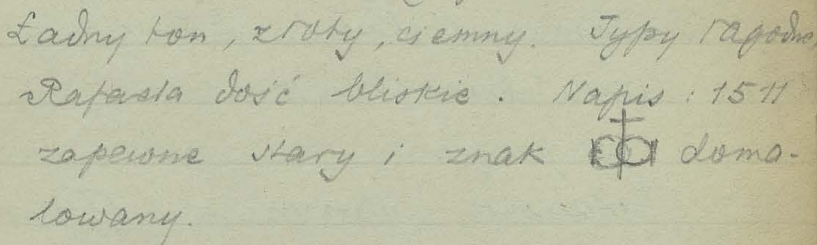 Ładny ton, złoty, ciemny. Typy łagodne,
Rafaela dość bliskie. Napis: 1511
zapewne stary i znak doma-
lowany.